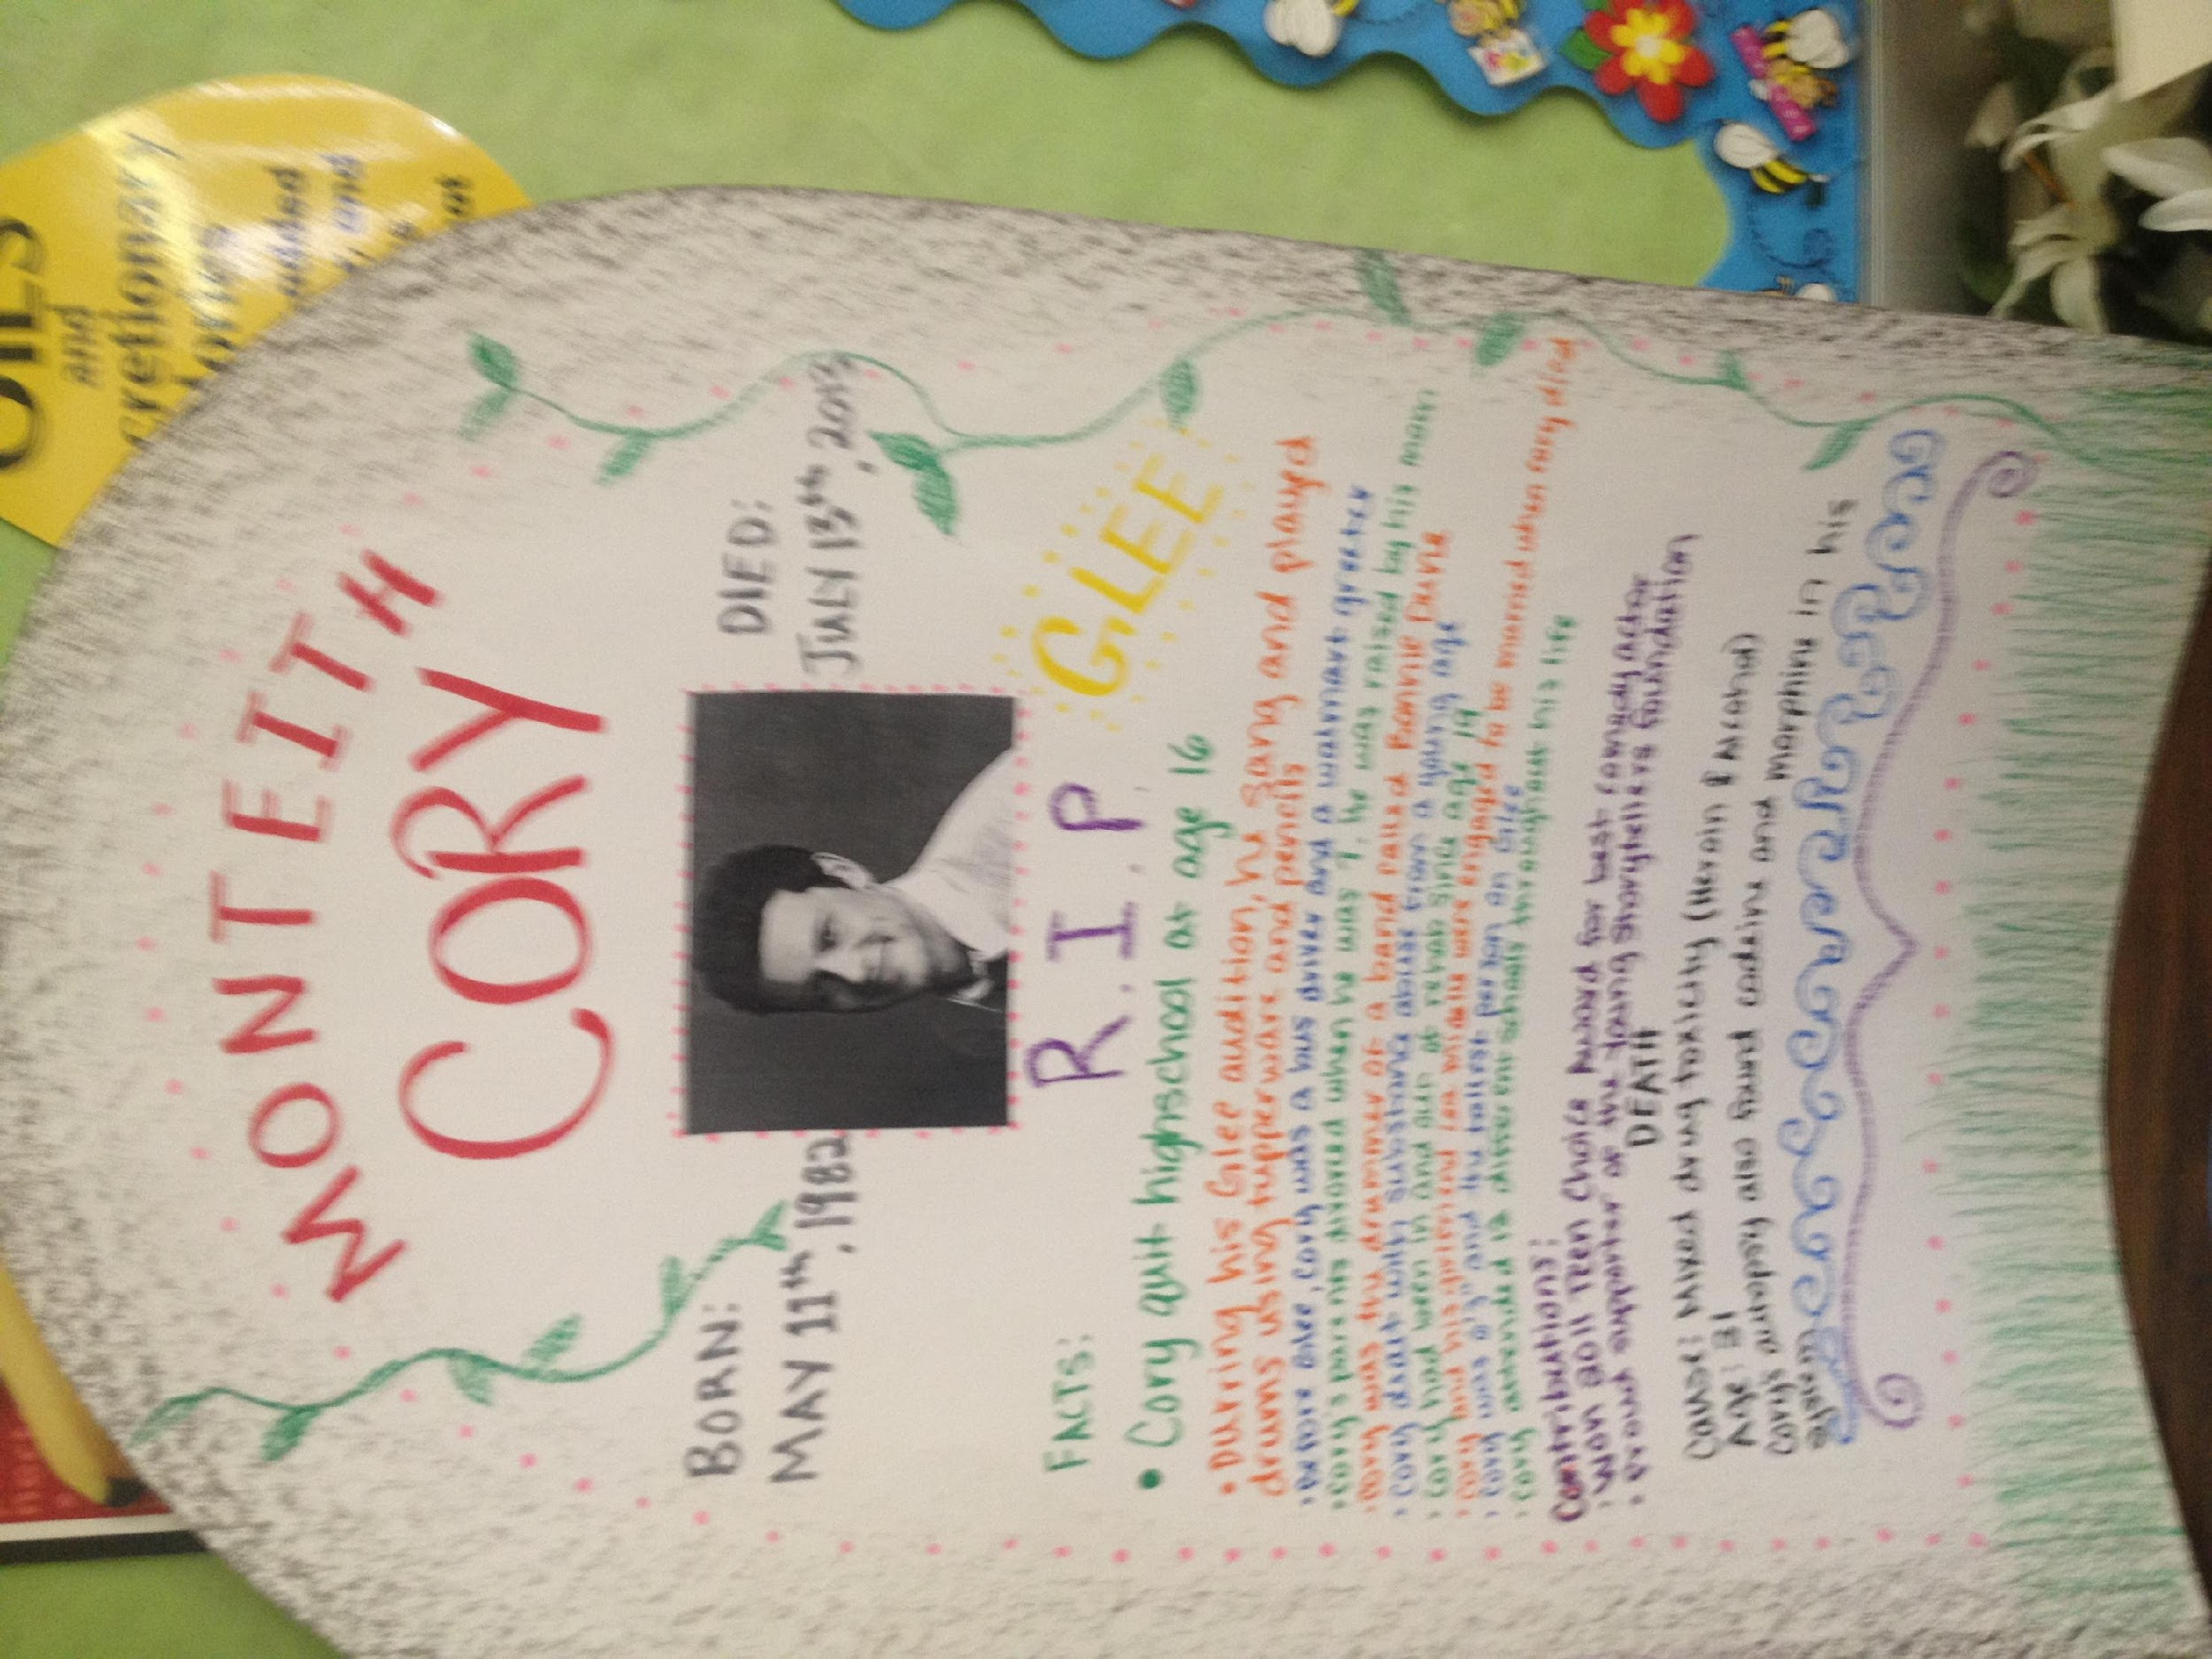 MONTEITH
CORY
BORN:
MAY 11th, 1982
DIED:
JULY 13th, 2013
R.I.P.
GLEE
FACTS:
• Cory quit highschool at age 16
• During his Glee audition, he sang and played
drums using tupperware and pencils
• Before Glee, Cory was a bus driver and a walmart greeter
• Cory's parents divorced when he was 7. he was raised by his mom
• Cory was the drummer of a band called Bonnie Dune
• Cory dealt with substance abuse from a young age
• Cory had been in and out of rehab since age 19
• Cory and his girlfriend Lea Michele were engaged to be married when Cory died
• Cory was 6'3" and the tallest person on Glee
• Cory attended 12 different schools throughout his life
Contributions:
• Won 2011 Teen Choice Award for best comedy actor
• Proud supporter of the Young Storytellers Foundation
DEATH
Cause: Mixed drug toxicity (Heroin & Alcohol)
Age: 31
Cory's autopsy also found codeine and morphine in his
system
and
cretionary